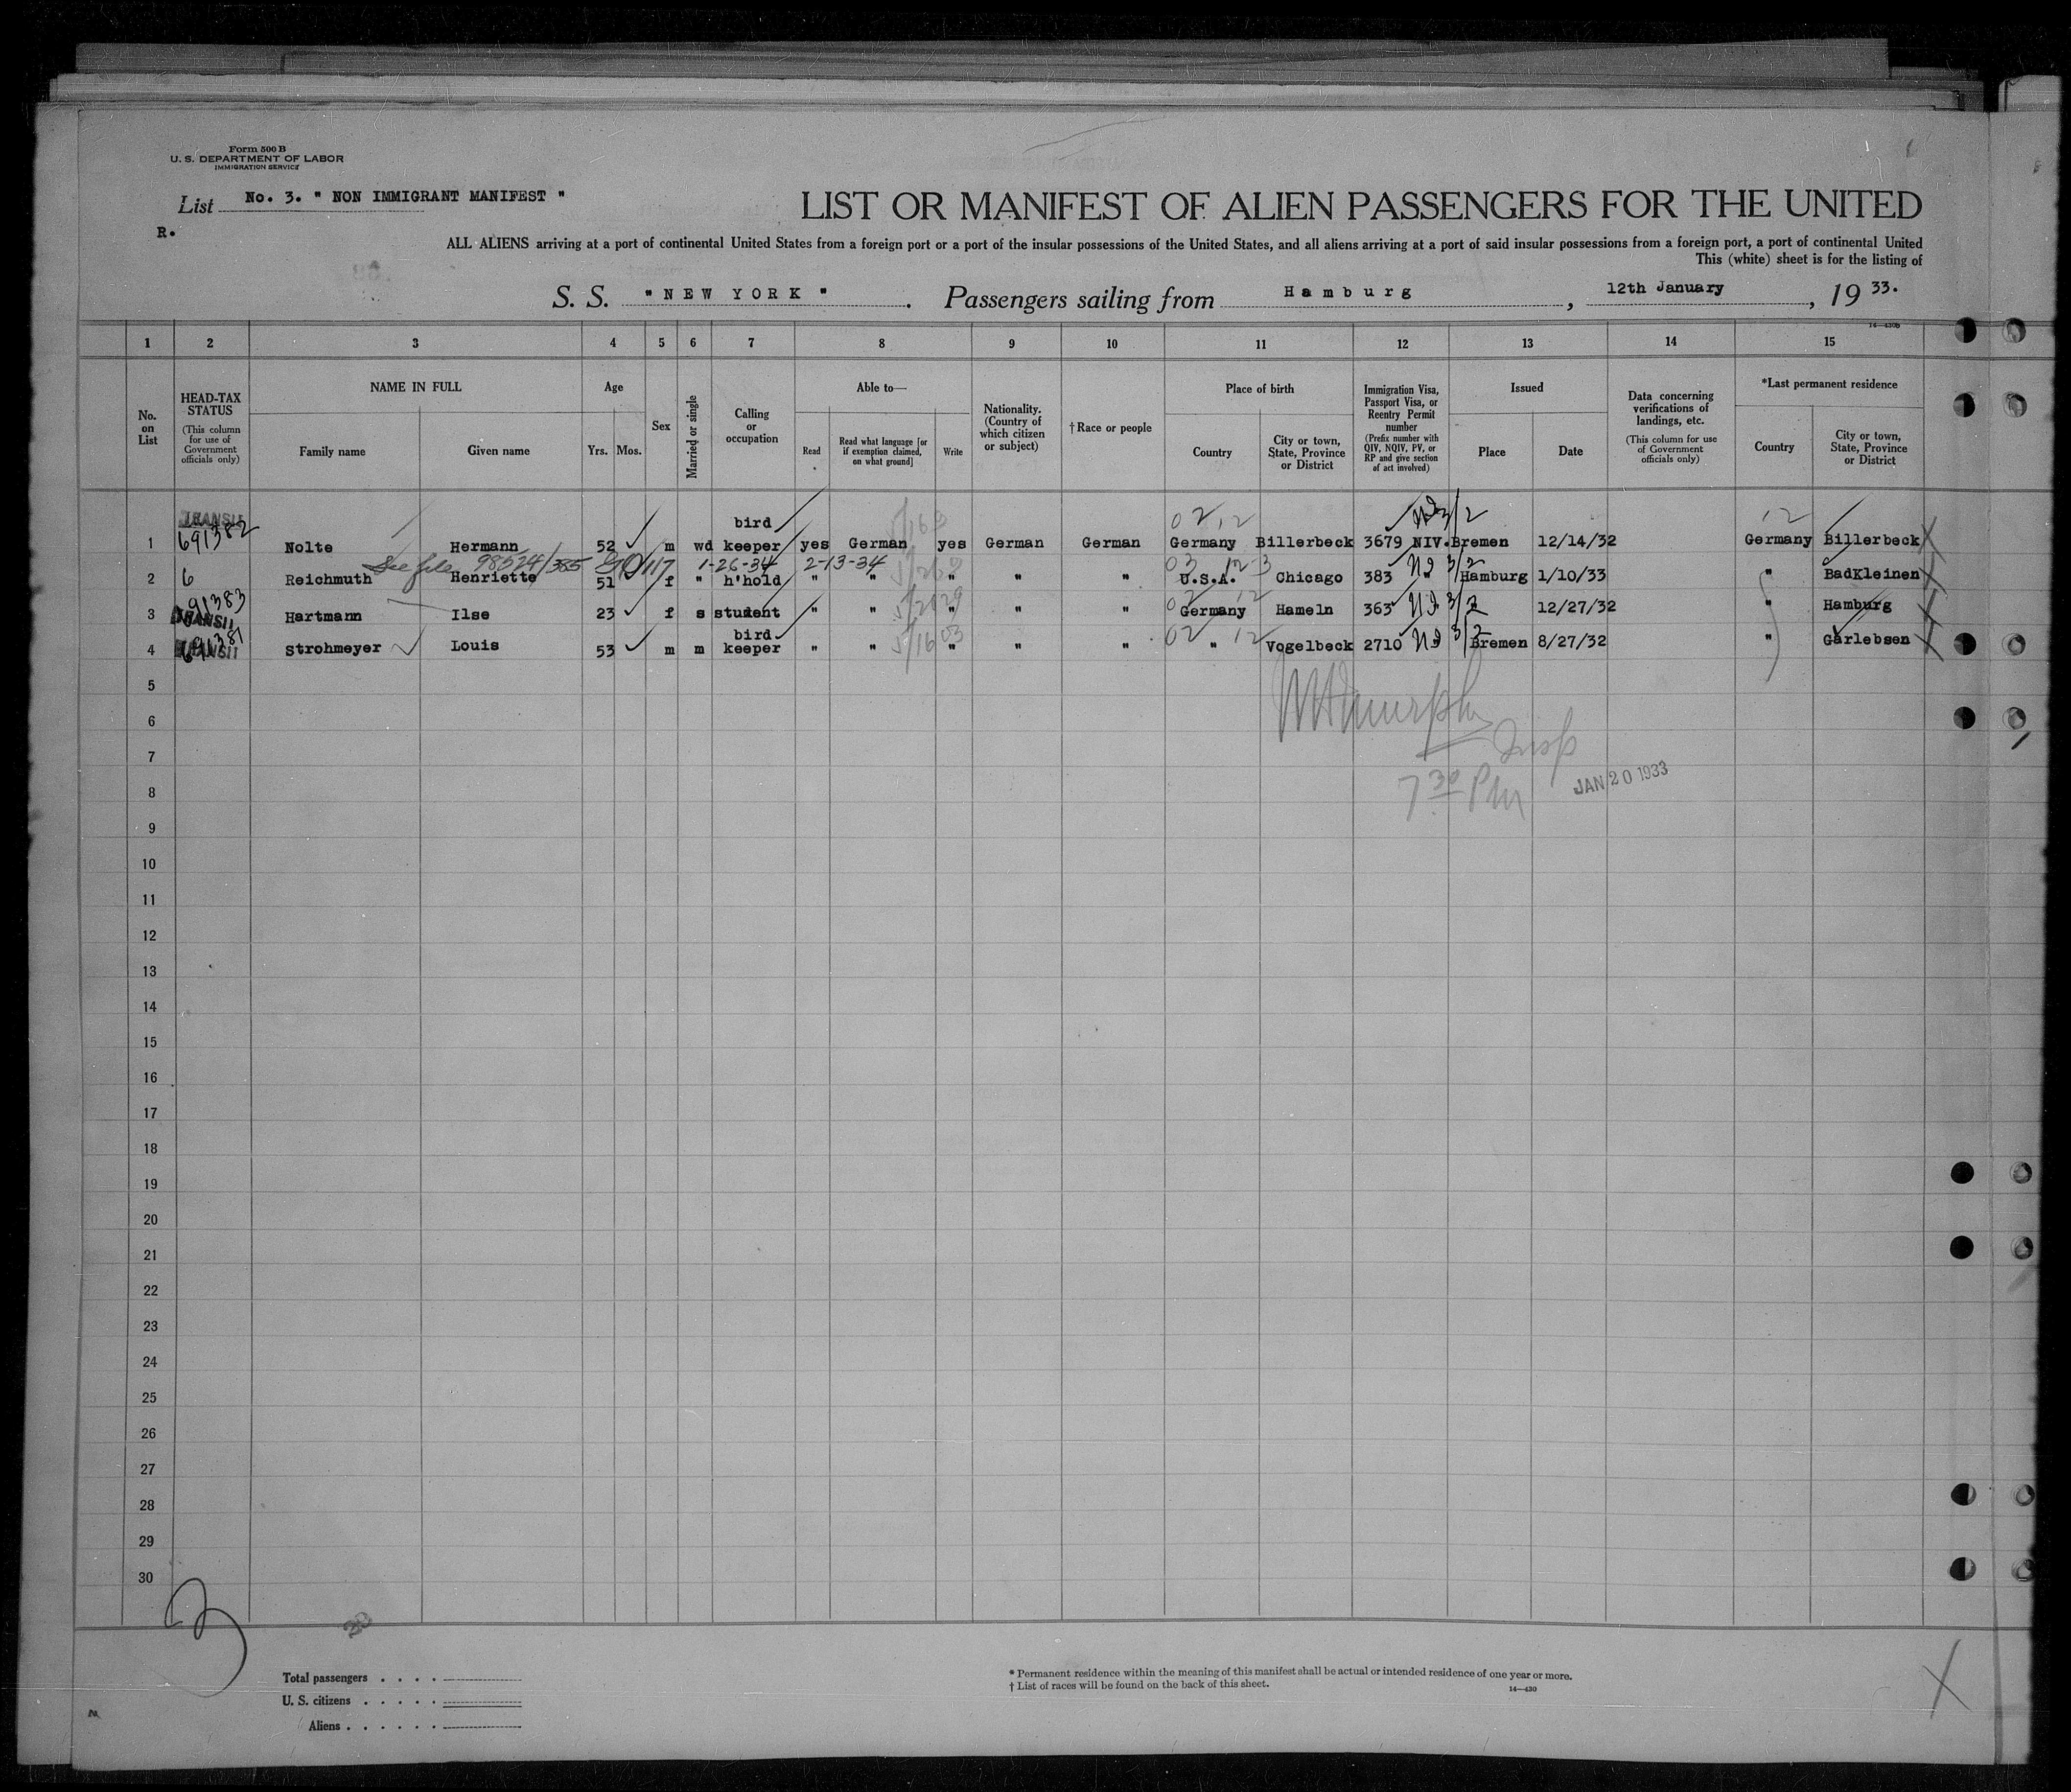 Form 500 B
U. S. DEPARTMENT OF LABOR
IMMIGRATION SERVICE
List No. 3. " NON IMMIGRANT MANIFEST "
R.
LIST OR MANIFEST OF ALIEN PASSENGERS FOR THE UNITED
ALL ALIENS arriving at a port of continental United States from a foreign port or a port of the insular possessions of the United States, and all aliens arriving at a port of said insular possessions from a foreign port, a port of continental United
This (white) sheet is for the listing of
S. S. "NEW YORK". Passengers sailing from Hamburg, 12th January, 19 33.
14—430b
1 2 3 4 5 6 7 8 9 10 11 12 13 14 15
No. on List
HEAD-TAX STATUS
(This column for use of Government officials only)
NAME IN FULL
Family name
Given name
Age
Yrs. Mos.
Sex
Married or single
Calling or occupation
Able to—
Read
Read what language [or if exemption claimed, on what ground]
Write
Nationality. (Country of which citizen or subject)
†Race or people
Place of birth
Country
City or town, State, Province or District
Immigration Visa, Passport Visa, or Reentry Permit number
(Prefix number with QIV, NQIV, PV, or RP and give section of act involved)
Issued
Place
Date
Data concerning verifications of landings, etc.
(This column for use of Government officials only)
*Last permanent residence
Country
City or town, State, Province or District
TRANSIT 02 12 3/2 12
1 691382 Nolte Hermann 52 m wd bird keeper yes German yes German German Germany Billerbeck 3679 NIV. Bremen 12/14/32 Germany Billerbeck
See file 98524/385 1-26-34 2-13-34 03 12-3 3/2
2 6 Reichmuth Henriette 51 f " h'hold " " " " " U.S.A. Chicago 383 " Hamburg 1/10/33 " BadKleinen
3 691383 TRANSIT Hartmann Ilse 23 f s student " " " " " Germany Hameln 363 3/2 12/27/32 " Hamburg
4 691381 TRANSIT Strohmeyer Louis 53 m m bird keeper " " " " " 02 " 12 Vogelbeck 2710 3/2 Bremen 8/27/32 " Garlebsen
5
6
Murphy
7
Insp
8
7 30 PM JAN 20 1933
9
10
11
12
13
14
15
16
17
18
19
20
21
22
23
24
25
26
27
28
29
30
3
20
Total passengers . . . .
U. S. citizens . . . . .
Aliens . . . . . .
* Permanent residence within the meaning of this manifest shall be actual or intended residence of one year or more.
† List of races will be found on the back of this sheet.
14—430